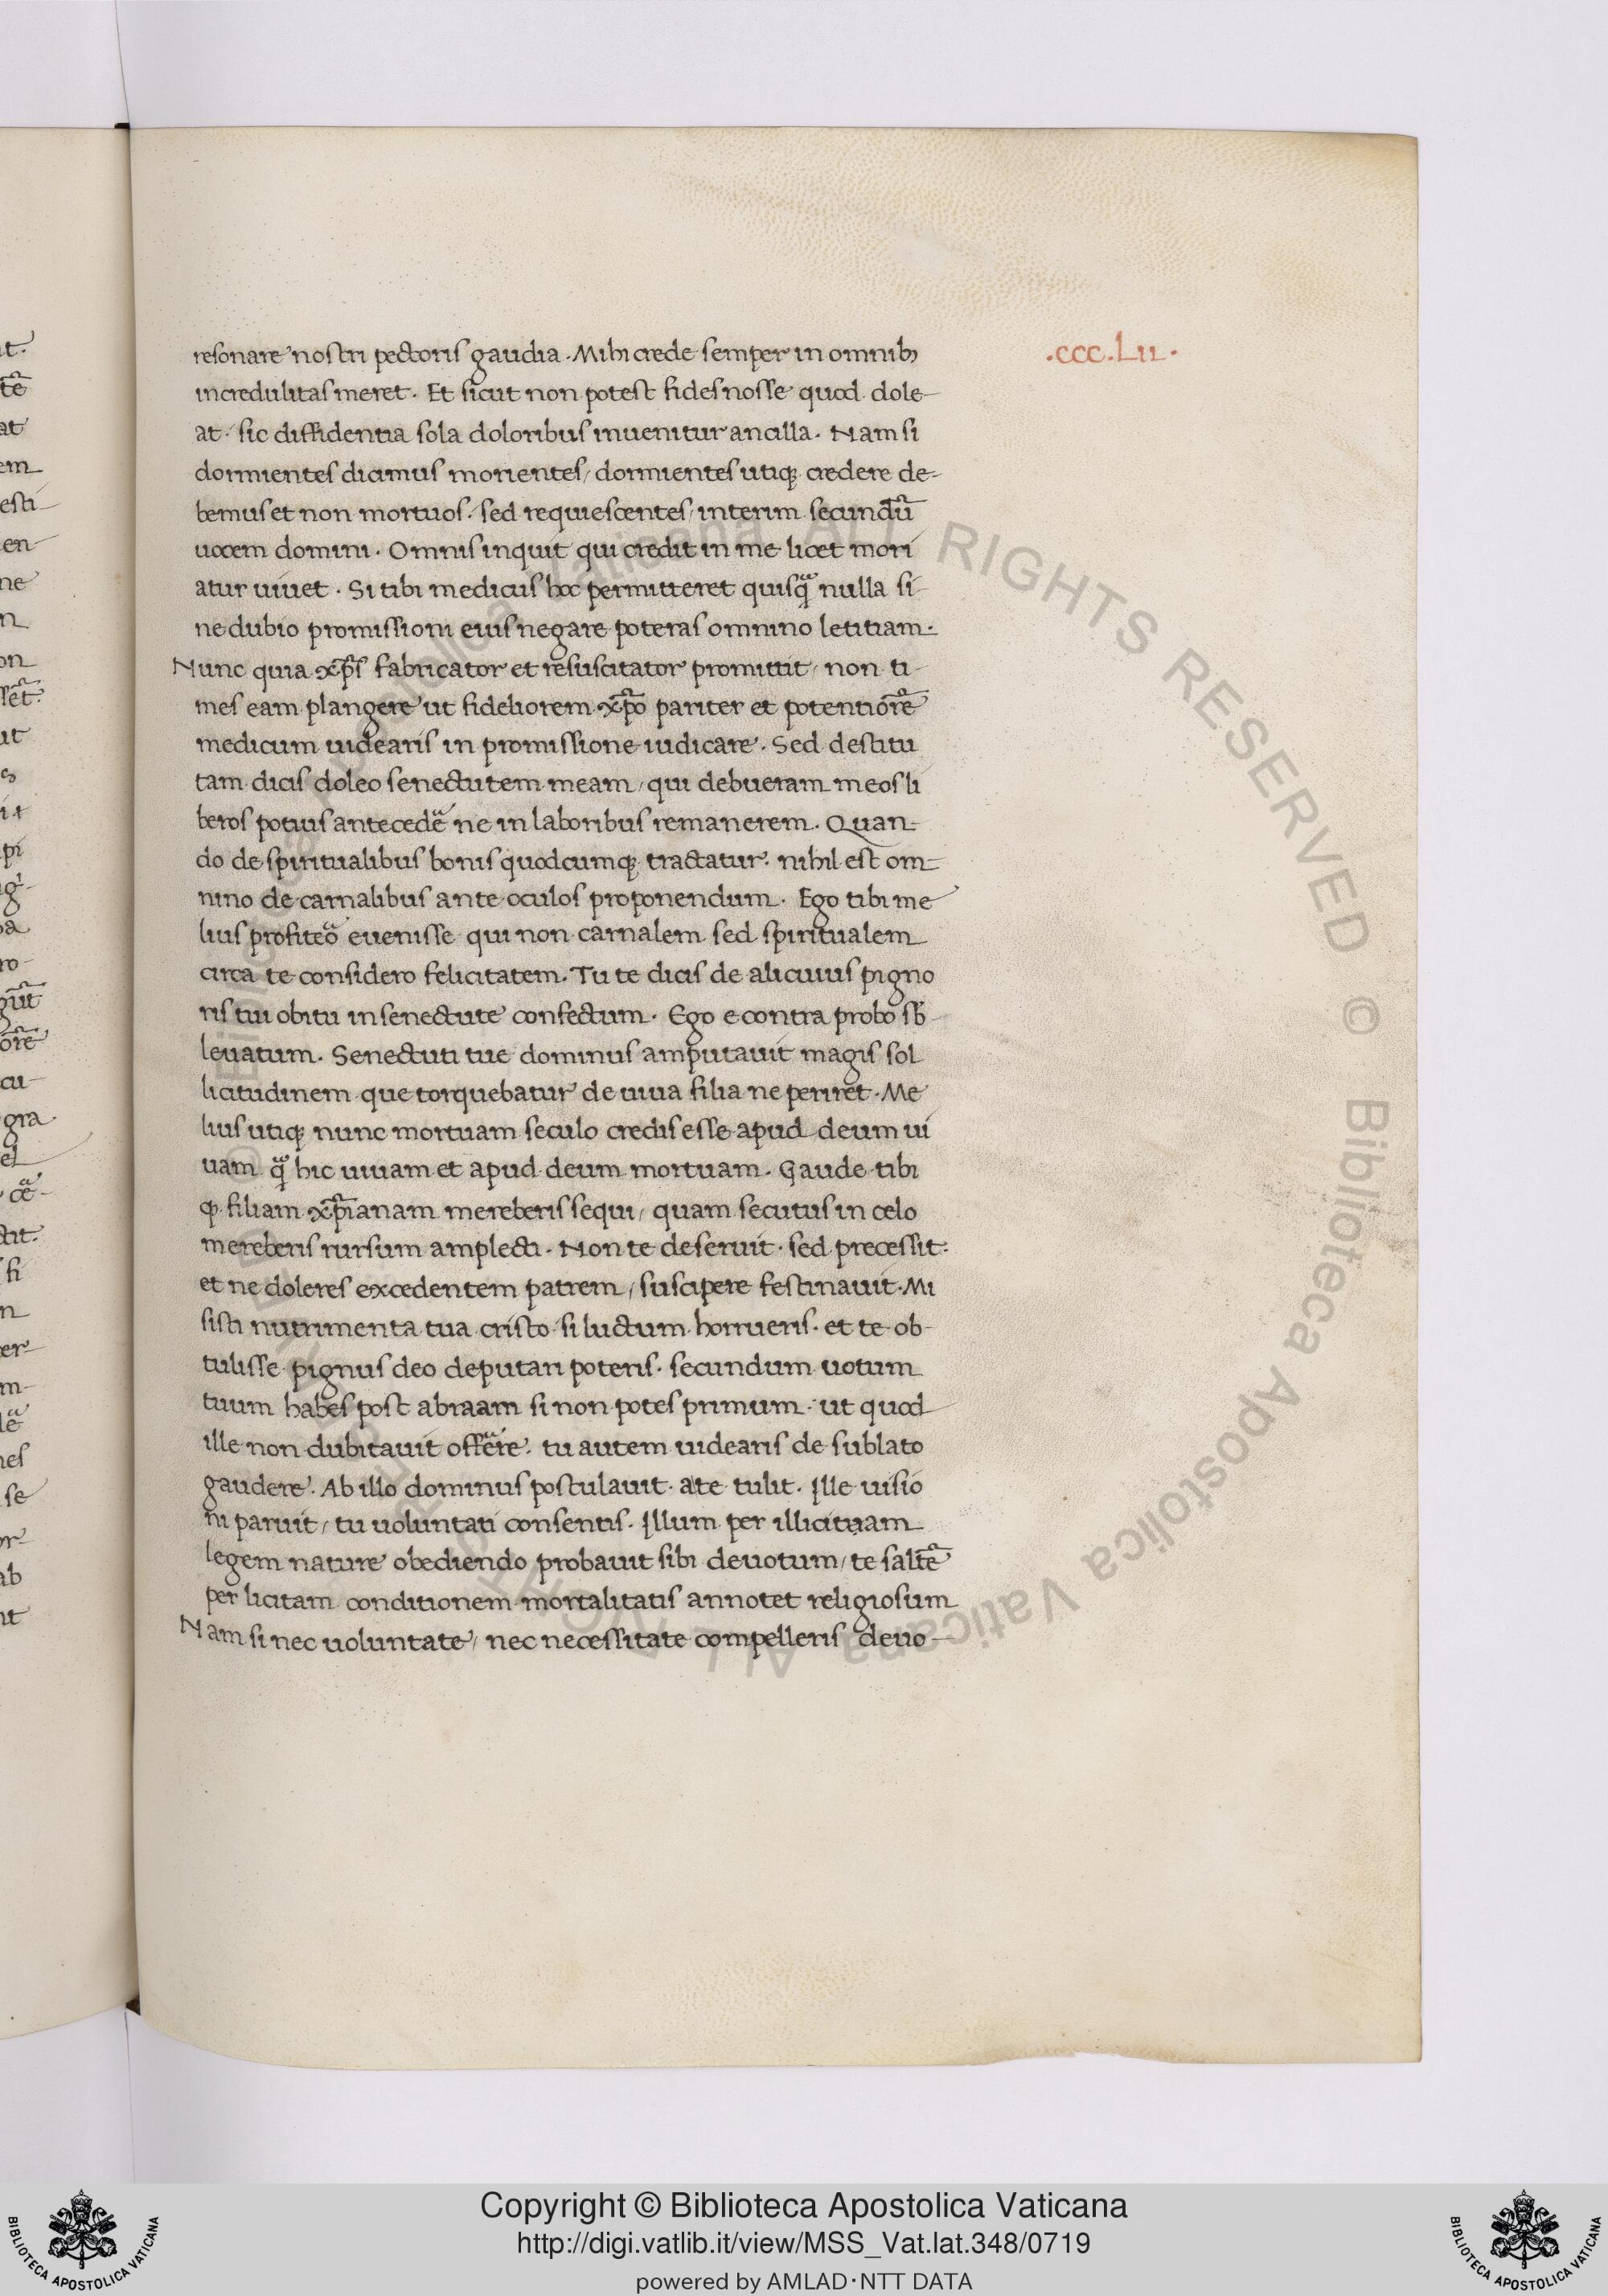 resonare nostri pectoris gaudia. Mihi crede semper in omnib;
.ccc.Lii.
incredulitas meret. Et sicut non potest fides nosse quod dole-
at. sic diffidentia sola doloribus inuenitur ancilla. Nam si
dormientes dicimus morientes/ dormientes utiq; credere de-
bemus et non mortuos. sed requiescentes/ interim secundū
uocem domini. Omnis inquit qui credit in me licet mori
atur uiuet. Si tibi medicus hoc permitteret quisqᷓ nulla si-
ne dubio promissioni eius negare poteras omnino letitiam.
Nunc quia xp̄s fabricator et resuscitator promittit/ non ti-
mes eam plangere ut fideliorem xp̄o pariter et potentiorē
medicum uidearis in promissione iudicare. Sed destitu
tam dicis doleo senectutem meam/ qui debueram meos li
beros potius antecedēͣ ne in laboribus remanerem. Quan-
do de spiritualibus bonis quodcumq; tractatur. nihil est om-
nino de carnalibus ante oculos proponendum. Ego tibi me
lius profiteoͣ euenisse qui non carnalem sed spiritualem
circa te considero felicitatem. Tu te dicis de alicuius pigno
ris tui obitu in senectute confectum. Ego e contra probo sb̄-
leuatum. Senectuti tue dominus amputauit magis sol
licitudinem que torquebatur de uiua filia ne periret. Me
lius utiq; nunc mortuam seculo credis esse apud deum ui
uam qᷓ hic uiuam et apud deum mortuam. Gaude tibi
ꝙ filiam xp̄ianam mereberis sequi/ quam secutus in celo
mereberis rursum amplecti. Non te deseruit. sed precessit.
et ne doleres excedentem patrem/ suscipere festinauit. Mi
sisti nutrimenta tua cristo si luctum horrueris. et te ob-
tulisse pignus deo deputari poteris. secundum uotum
tuum habes post abraam si non potes primum. ut quod
ille non dubitauit offeͣre. tu autem uidearis de sublato
gaudere. Ab illo dominus postulauit. a te tulit. Ille uisio
ni paruit/ tu uoluntati consentis. Illum per illicituam
legem nature obediendo probauit sibi deuotum/ te saltē
per licitam conditionem mortalitatis annotet religiosum
Nam si nec uoluntate/ nec necessitate compelleris deuo-
Copyright © Biblioteca Apostolica Vaticana
http://digi.vatlib.it/view/MSS_Vat.lat.348/0719
powered by AMLAD·NTT DATA
BIBLIOTECA APOSTOLICA VATICANA
BIBLIOTECA APOSTOLICA VATICANA